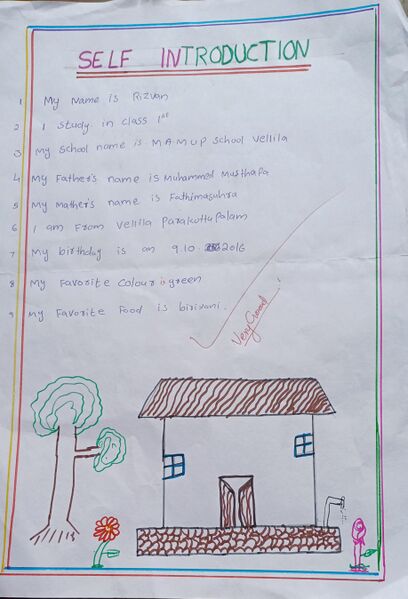 SELF INTRODUCTION
1 My Name is Rizvan
2 I study in class 1st
3 My School name is M A M U P School Vellila
4 My Father's name is Muhammed Musthafa
5 My Mather's name is Fathimasuhra
6 I am From Vellila Parakottupalam
7 My birthday is on 9.10 2016
8 My Favorite Colour is green
9 My Favorite Food is biriyani.
Very Good